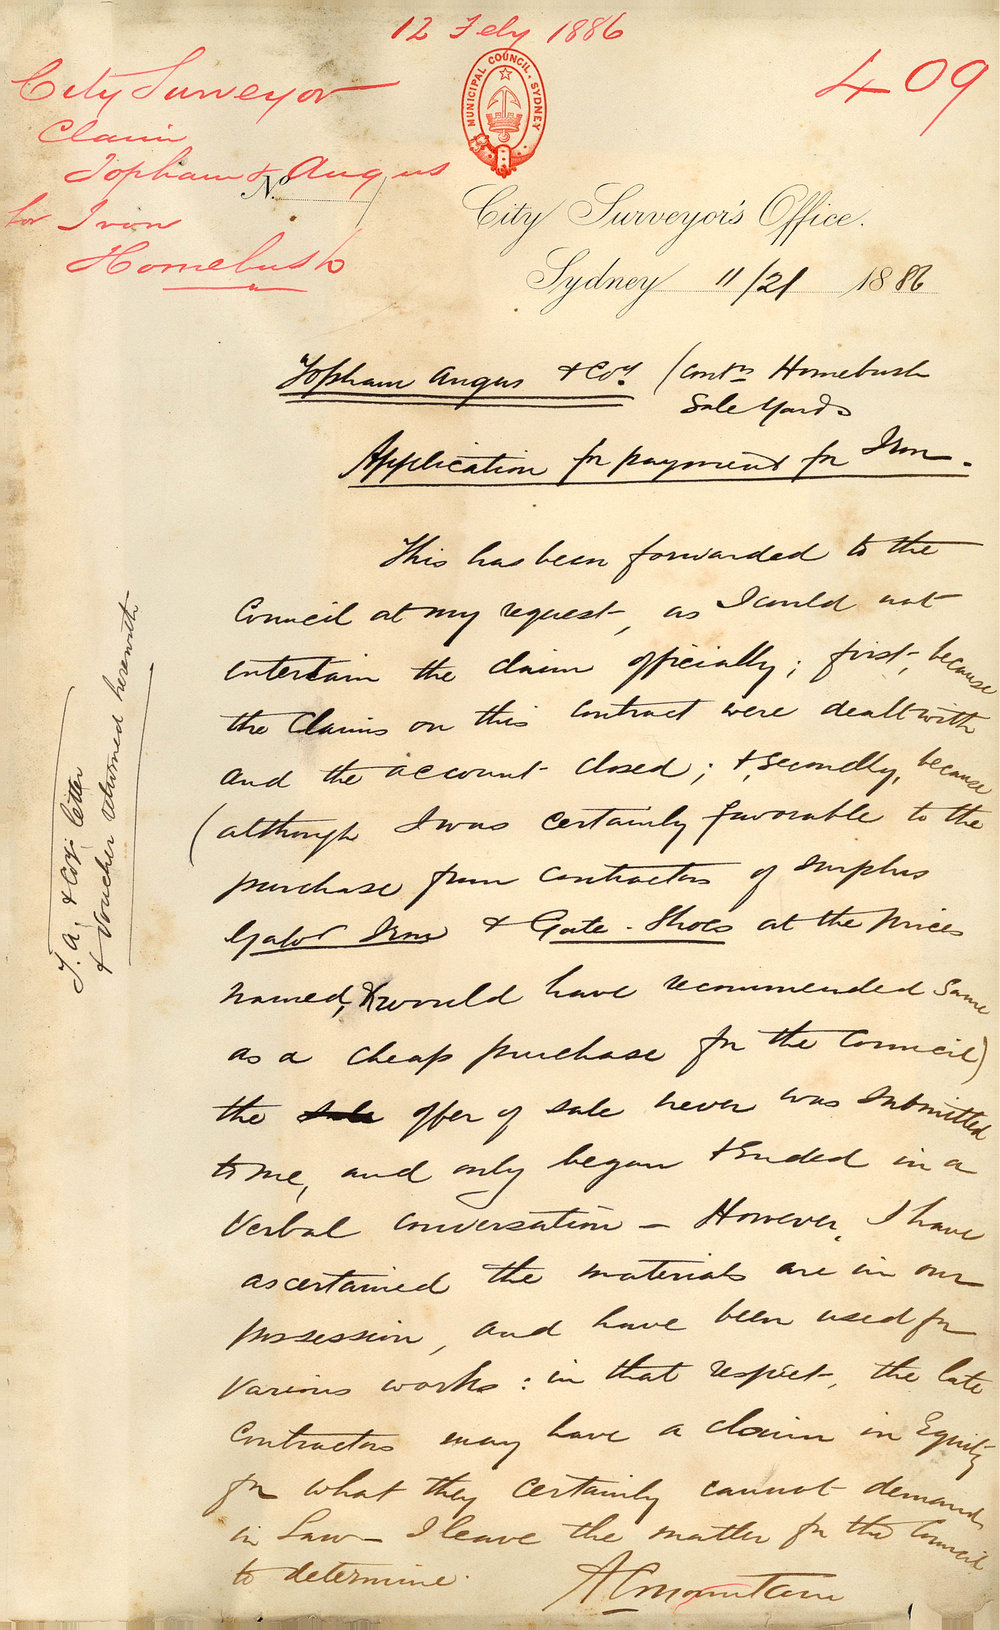 12 Feby 1886
409
City Surveyor
Claim
Topham & Angus
for Iron
Homebush
MUNICIPAL COUNCIL. SYDNEY
No.
City Surveyor's Office.
Sydney 11/2/ 1886
Topham Angus & Coy. (Contrs Homebush
Sale Yards
Application for payment for Iron.
This has been forwarded to the
Council at my request, as I could not
entertain the claim officially; first, because
the Claims on this Contract were dealt with
and the account closed; & secondly, because
(although I was certainly favorable to the
purchase from contractors of surplus
Galvd Iron & Gate-Shoes at the prices
named, & would have recommended same
as a cheap purchase for the Council)
the sale offer of sale never was submitted
to me, and only began & ended in a
Verbal conversation - However, I have
ascertained the materials are in our
possession, and have been used for
various works: in that respect, the late
Contractors may have a claim in Equity
for what they certainly cannot demand
in Law - I leave the matter for the Council
to determine.
A C Mountain
T. A. & Coy. letter
& Voucher returned herewith